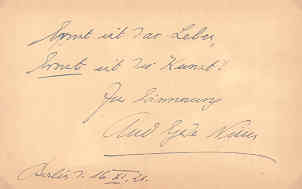 Ernst ist das Leben,
Ernst ist die Kunst!
Zur Erinnerung
Berlin d. 16. XI. 21.